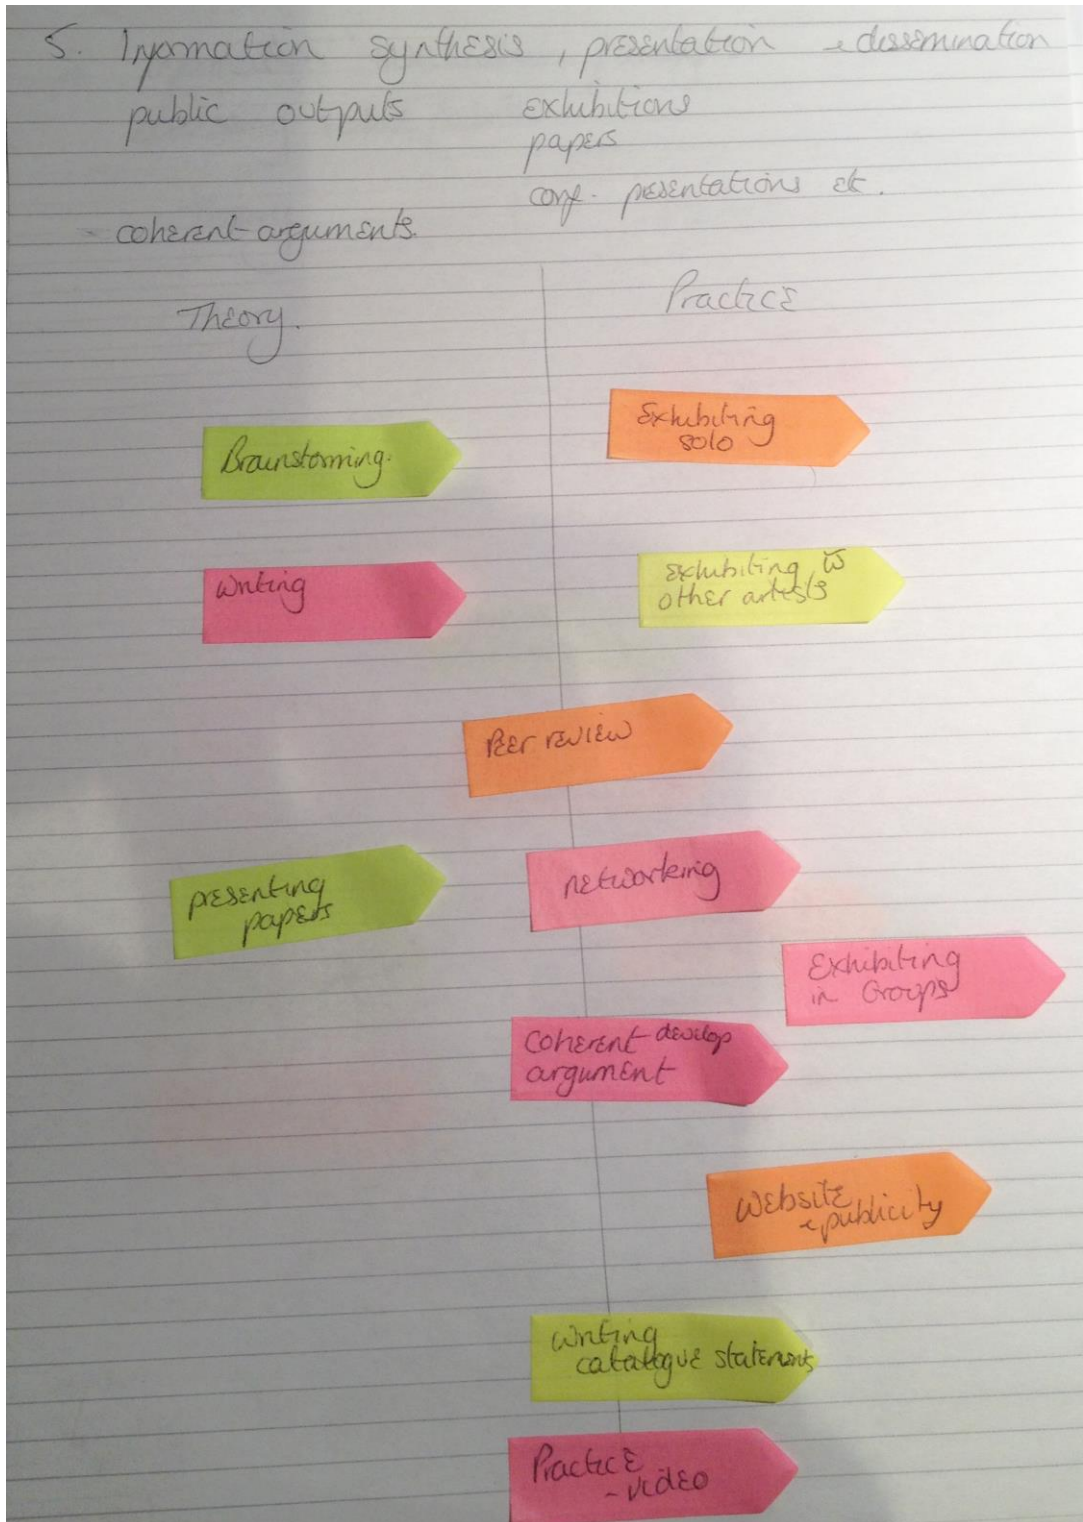 5. Information synthesis, presentation & dissemination
public outputs exhibitions
papers
conf. presentations etc.
- coherent arguments.
Theory. Practice
Brainstorming.
Exhibiting
solo
Writing
exhibiting w
other artists
Peer review
presenting
papers
networking
Exhibiting
in Groups
coherent develop
argument
Website
& publicity
Writing
catalogue statements
Practice
- video